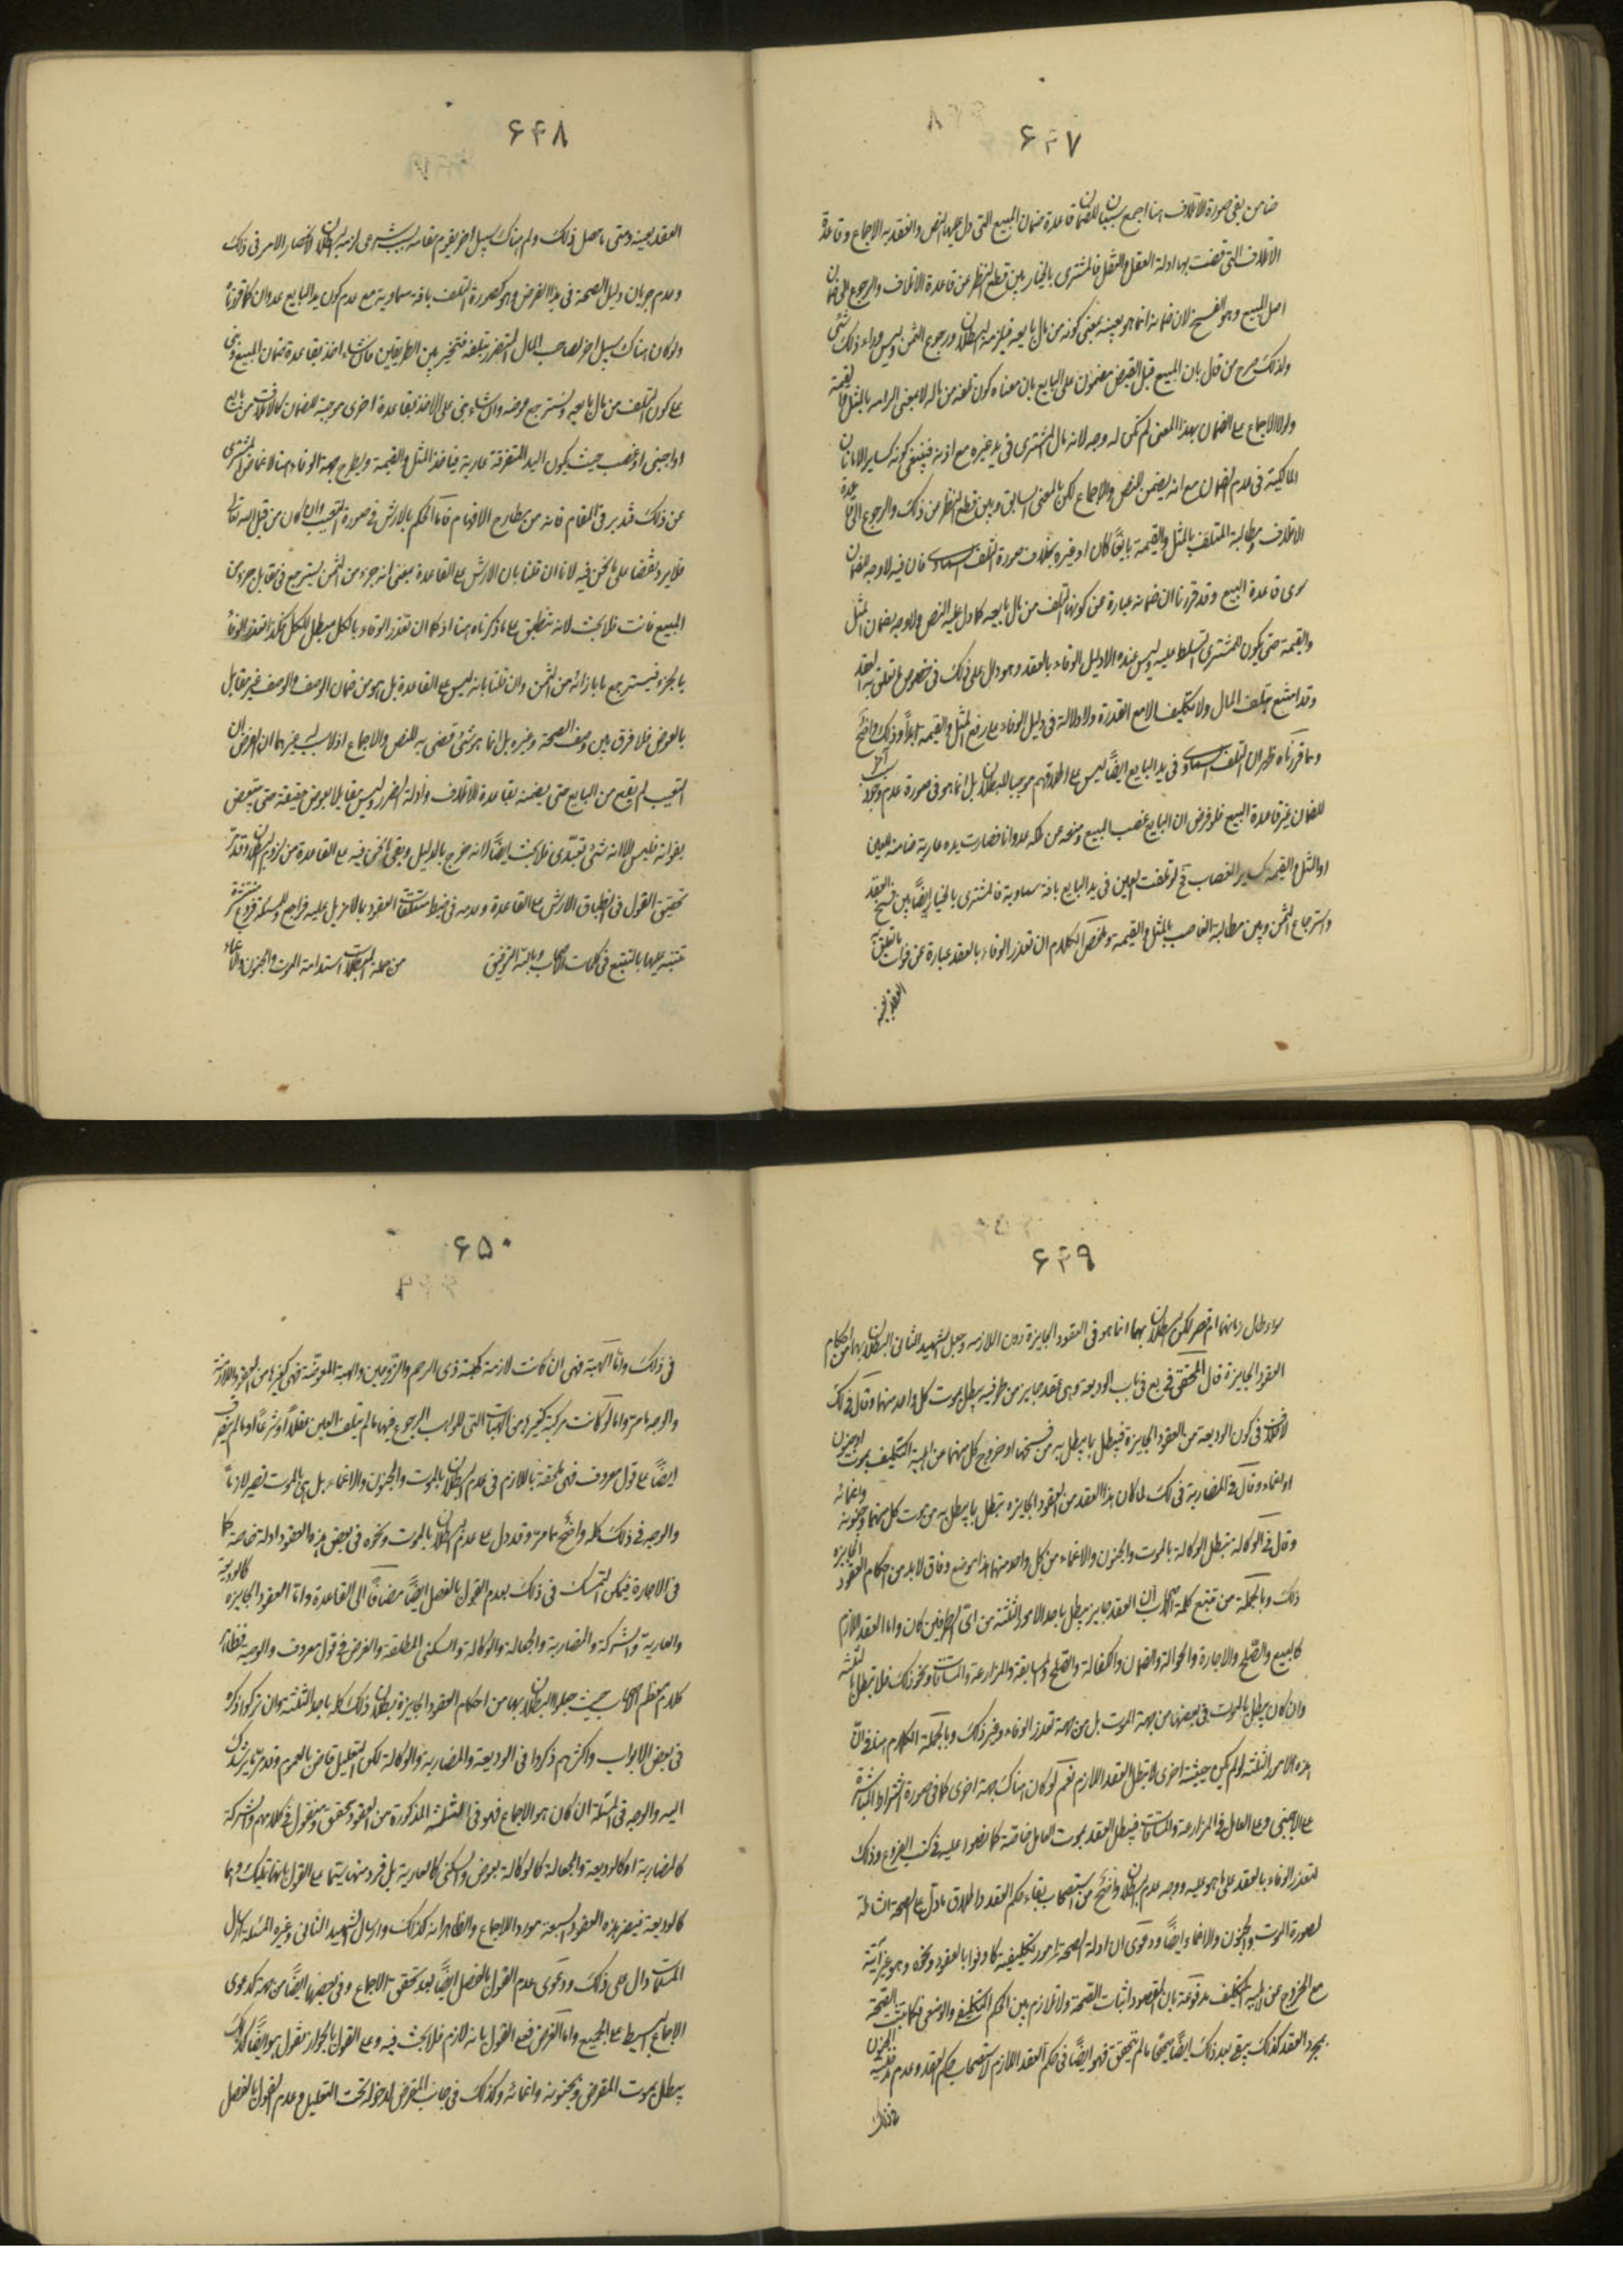 ۶۴۷
ضامن بقی صورة الاتلاف هنا اجمع سببان للضمان قاعدة ضمان المبیع التی دل علیها النص وانعقد به الاجماع وقاعدة
الاتلاف التی قضت بها ادلة العقل والنقل فالمشتری بالخیار بین قطع النظر عن قاعدة الاتلاف والرجوع الی ضمان
اصل المبیع وهو الفسخ لان ضمانه انما هو بعینه بمعنی کونه من مال بایعه فیلزمه البطلان ورجوع الثمن ولیس وراء ذلک شئ
ولذلک صرح من قال بان المبیع قبل القبض مضمون علی البایع بان معناه کون تلفه من ماله لا بمعنی الزامه بالمثل والقیمة
ولولا الاجماع علی الضمان بهذا المعنی لم یکن له وجه لانه مال المشتری فی ید غیره مع اذنه فینبغی کونه کسایر الامانات
المالکیة فی عدم الضمان مع انه یضمن للنص والاجماع لکن بالمعنی السابق وبین قطع النظر من ذلک والرجوع الی قاعدة
الاتلاف ومطالبة المتلف بالمثل والقیمة بایعا کان او غیره بخلاف صورة التلف السماوی فان فیه لا وجه للضمان
سوی قاعدة البیع وقد قررنا ان ضمانه عبارة عن کونه التلف من مال بایعه کما دل علیه النص ولا وجه بضمان المثل
والقیمة حتی یکون للمشتری تسلط علیه ولیس عنده الا دلیل الوفاء بالعقد وهو دل علی ذلک فی خصوص ما تعلق به العقد
وقد امتنع بتلف المال ولا تکلیف الا مع القدرة ولا دلالة فی دلیل الوفاء علی دفع المثل والقیمة ابدا وذلک واضح
ومما قررناه ظهر ان التلف السماوی فی ید البایع ایضا لیس علی اطلاقهم موجبا للبطلان بل انما هو فی صورة عدم وجود سبب آخر
للضمان غیر قاعدة المبیع فلو فرض ان البایع غصب المبیع ومنعه عن مالکه عدوانا فصارت یده عاریة ضامنة للعین
او المثل والقیمة کسایر الغصاب فح لو تلفت العین فی ید البایع بافة سماویة فالمشتری بالخیار ایضا بین فسخ العقد
واسترجاع الثمن وبین مطالبة الغاصب بالمثل والقیمة وملخص الکلام ان تعذر الوفاء بالعقد عبارة عن فوات ما تعلق به
العقد بعینه
۶۴۸
العقد بعینه ومتی ما حصل ذلک ولم یکن هناک سبیل اخر یقوم مقامه بسبب شرعی لزمه البطلان لانحصار الامر فی ذلک
وعدم جریان دلیل الصحة فی هذا الفرض وهو کصورة التلف بافة سماویة مع عدم کون ید البایع عدوان کما قررناه
ولو کان هناک سبیل اخر لصاحب المال المتضرر بتلفه فیتخیر بین الطریقین فان شاء اخذ بقاعدة ضمان المبیع وبنی
علی کون التلف من مال بایعه واسترجع عوضه وان شاء بنی علی الاخذ بقاعدة اخری موجبة للضمان کالاتلاف من بایع
او اجنبی او غصب حیث یکون الید المتفرقة عاریة فیاخذ المثل والقیمة ویطرح جهة الوفاء هنا لاغماض المشتری
عن ذلک فتدبر فی المقام فانه من مطارح الافهام فاما الحکم بالارش فی صورة التعیب وان کان من قبل الله تعالی
فلا یرد نقضا علی ما نحن فیه لانا ان قلنا بان الارش علی القاعدة بمعنی انه جزء من الثمن یسترجع فی مقابل جزء من
المبیع فائت فلا بحث لانه منطبق علی ما ذکرناه هنا اذ کما ان تعذر الوفاء بالکل مبطل للکل فکذا تعذر الوفاء
بالجزء فیسترجع ما بازائه من الثمن وان قلنا بانه لیس علی القاعدة بل هو من ضمان الوصف والوصف غیر مقابل
بالعوض فلا فرق بین وصف الصحة وغیره بل انما هو شئ قضی به النص والاجماع اذ لا سبب غیرهما اذ المفروض ان
التعیب لم یقع من البایع حتی یضمنه بقاعدة الاتلاف وادلة الضرر ولیس مقابلا بعوض حقیقة حتی یتبعض
بفواته فلیس الا انه شئ تعبدی فلا بحث ایضا لانه خرج بالدلیل وبقی ما نحن فیه علی القاعدة من لزوم البطلان وقد مر
تحقیق القول فی انطباق الارش علی القاعدة وعدمه فی ضبط متعلقات العقود بما لا مزید علیه فراجع وللمسئلة فروع منتشرة
تتنبه علیها بالتتبع فی کلمات الاصحاب وبالله التوفیق من جملة المبطلات استدامة الموت والجنون والاغماء
۶۴۹
سواء طال زمانهما ام قصر لکن البطلان بهما انما هو فی العقود الجایزة دون اللازمة وجعل الشهید الثانی البطلان بها من احکام
العقود الجایزة قال المحقق فی یع فی باب الودیعة وهی عقد جایز من طرفیه یبطل بموت کل واحد منهما وقال فی لک
لا خلاف فی کون الودیعة من العقود الجایزة فیبطل بما یبطل به من فسخها او خروج کل منهما من اهلیة التکلیف بموت او جنون
او اغماء وقال فی المضاربة فی لک لما کان هذا العقد من العقود الجایزه تبطل بما یبطل به من موت کل منهما وجنونه واغمائه
وقال فی الوکالة تبطل الوکالة بالموت والجنون والاغماء من کل واحد منهما هذا موضع وفاق لانه من احکام العقود الجایزه
ذلک وبالجملة من تتبع کلمة الاصحاب ان العقد جایز یبطل باحد الامور الثلثة من ای الطرفین کان واما العقد اللازم
کالبیع والصلح والاجارة والحوالة والضمان والکفالة والصلح والمسابقة والمزارعة والمساقات ونحو ذلک فلا تبطل بالثلثه
وان کان یبطل بالموت فی بعضها من جهة الموت بل من جهة تعذر الوفاء وغیر ذلک وبالجملة الکلام هنا فی ان
هذه الامور الثلثة لو لم یکن حیثیة اخری لا تبطل العقد اللازم نعم لو کان هناک جهة اخری کما فی صورة اشتراط المباشرة
علی الاجنبی وعلی العامل فی المزارعة والمساقات فیبطل العقد بموت العامل خاصة کما نصوا علیه فی کتب الفروع وذلک
لتعذر الوفاء بالعقد علی ما هو علیه ووجه عدم البطلان واضح من استصحاب بقاء حکم العقد واطلاق ما دل علی الصحة الشاملة
لصورة الموت والجنون والاغماء ایضا ودعوی ان ادلة الصحة امور تکلیفیة کاوفوا بالعقود ونحوه وهو غیر آتیة
مع الخروج عن اهلیة التکلیف مدفوعة بان المقصود اثبات الصحة ولا تلازم بین الحکم التکلیفی والوضعی فکما تثبت الصحة
بمجرد العقد کذلک یبقی بعد ذلک ایضا صحیحا ما لم یتحقق فهو ایضا فی حکم العقد اللازم لاستصحاب حکم العقد وعدم
فی ذلک
۶۵۰
فی ذلک واما الهبة فهی ان کانت لازمة کهبة ذی الرحم والزوجین والهبة المعوضة فهی کغیرها من العقود اللازمة
والوجه ما مر واما لو کانت من الهبات التی للواهب الرجوع فیها ما لم یتلف العین عقلا او شرعا او ما لم یتصرف
ایضا علی قول معروف فهی ملحقة باللازم فی عدم البطلان بالموت والجنون والاغماء بل هی بالموت تصیر لازما
والوجه فی ذلک کله واضح مما مر وقد دل علی عدم البطلان بالموت ونحوه فی بعض هذه العقود ادلة خاصة کما
فی الاجارة فیمکن التمسک فی ذلک بعدم القول بالفصل ایضا مضافا الی القاعدة واما العقود الجایزه کالودیعة
والعاریة والشرکة والمضاربة والجعالة والوکالة والسکنی المطلقة والقرض فی قول معروف والوصیة فظاهر
کلام معظم الاصحاب حیث جعلوا البطلان بها من احکام العقود الجایزة بطلان ذلک کله باحد الثلثة وان ترکوا ذکره
فی بعض الابواب واکثرهم ذکروا فی الودیعة والمضاربة والوکالة لکن التعلیل قاض بالعموم وقد مر ما یرشدک
الیه والوجه فی المسئلة ان کان هو الاجماع فهو فی الثلثة المذکورة من العقود محقق ومنقول فی کلامهم والشرکة
کالمضاربة او کالودیعة والجعالة کالوکالة بعوض والسکنی کالعاریة بل فرد منها سیما علی القول بانها تملیک وهما
کالودیعة فیصیر هذه العقود السبعة مورد الاجماع والظاهر انه کذلک وارسال الشهید الثانی وغیره المسئلة ارسال
المسلمات دال علی ذلک ودعوی عدم القول بالفصل ایضا بعد تحقق الاجماع وفی بعضها ایضا من جهة کدعوی
الاجماع البسیط علی الجمیع واما القرض فعلی القول بانه لازم فلا بحث فیه وعلی القول بالجواز نقول هو ایضا کذلک
یبطل بموت المقرض وبجنونه واغمائه وکذلک فی جانب المقترض لدخوله تحت التعلیل وعدم القول بالفصل